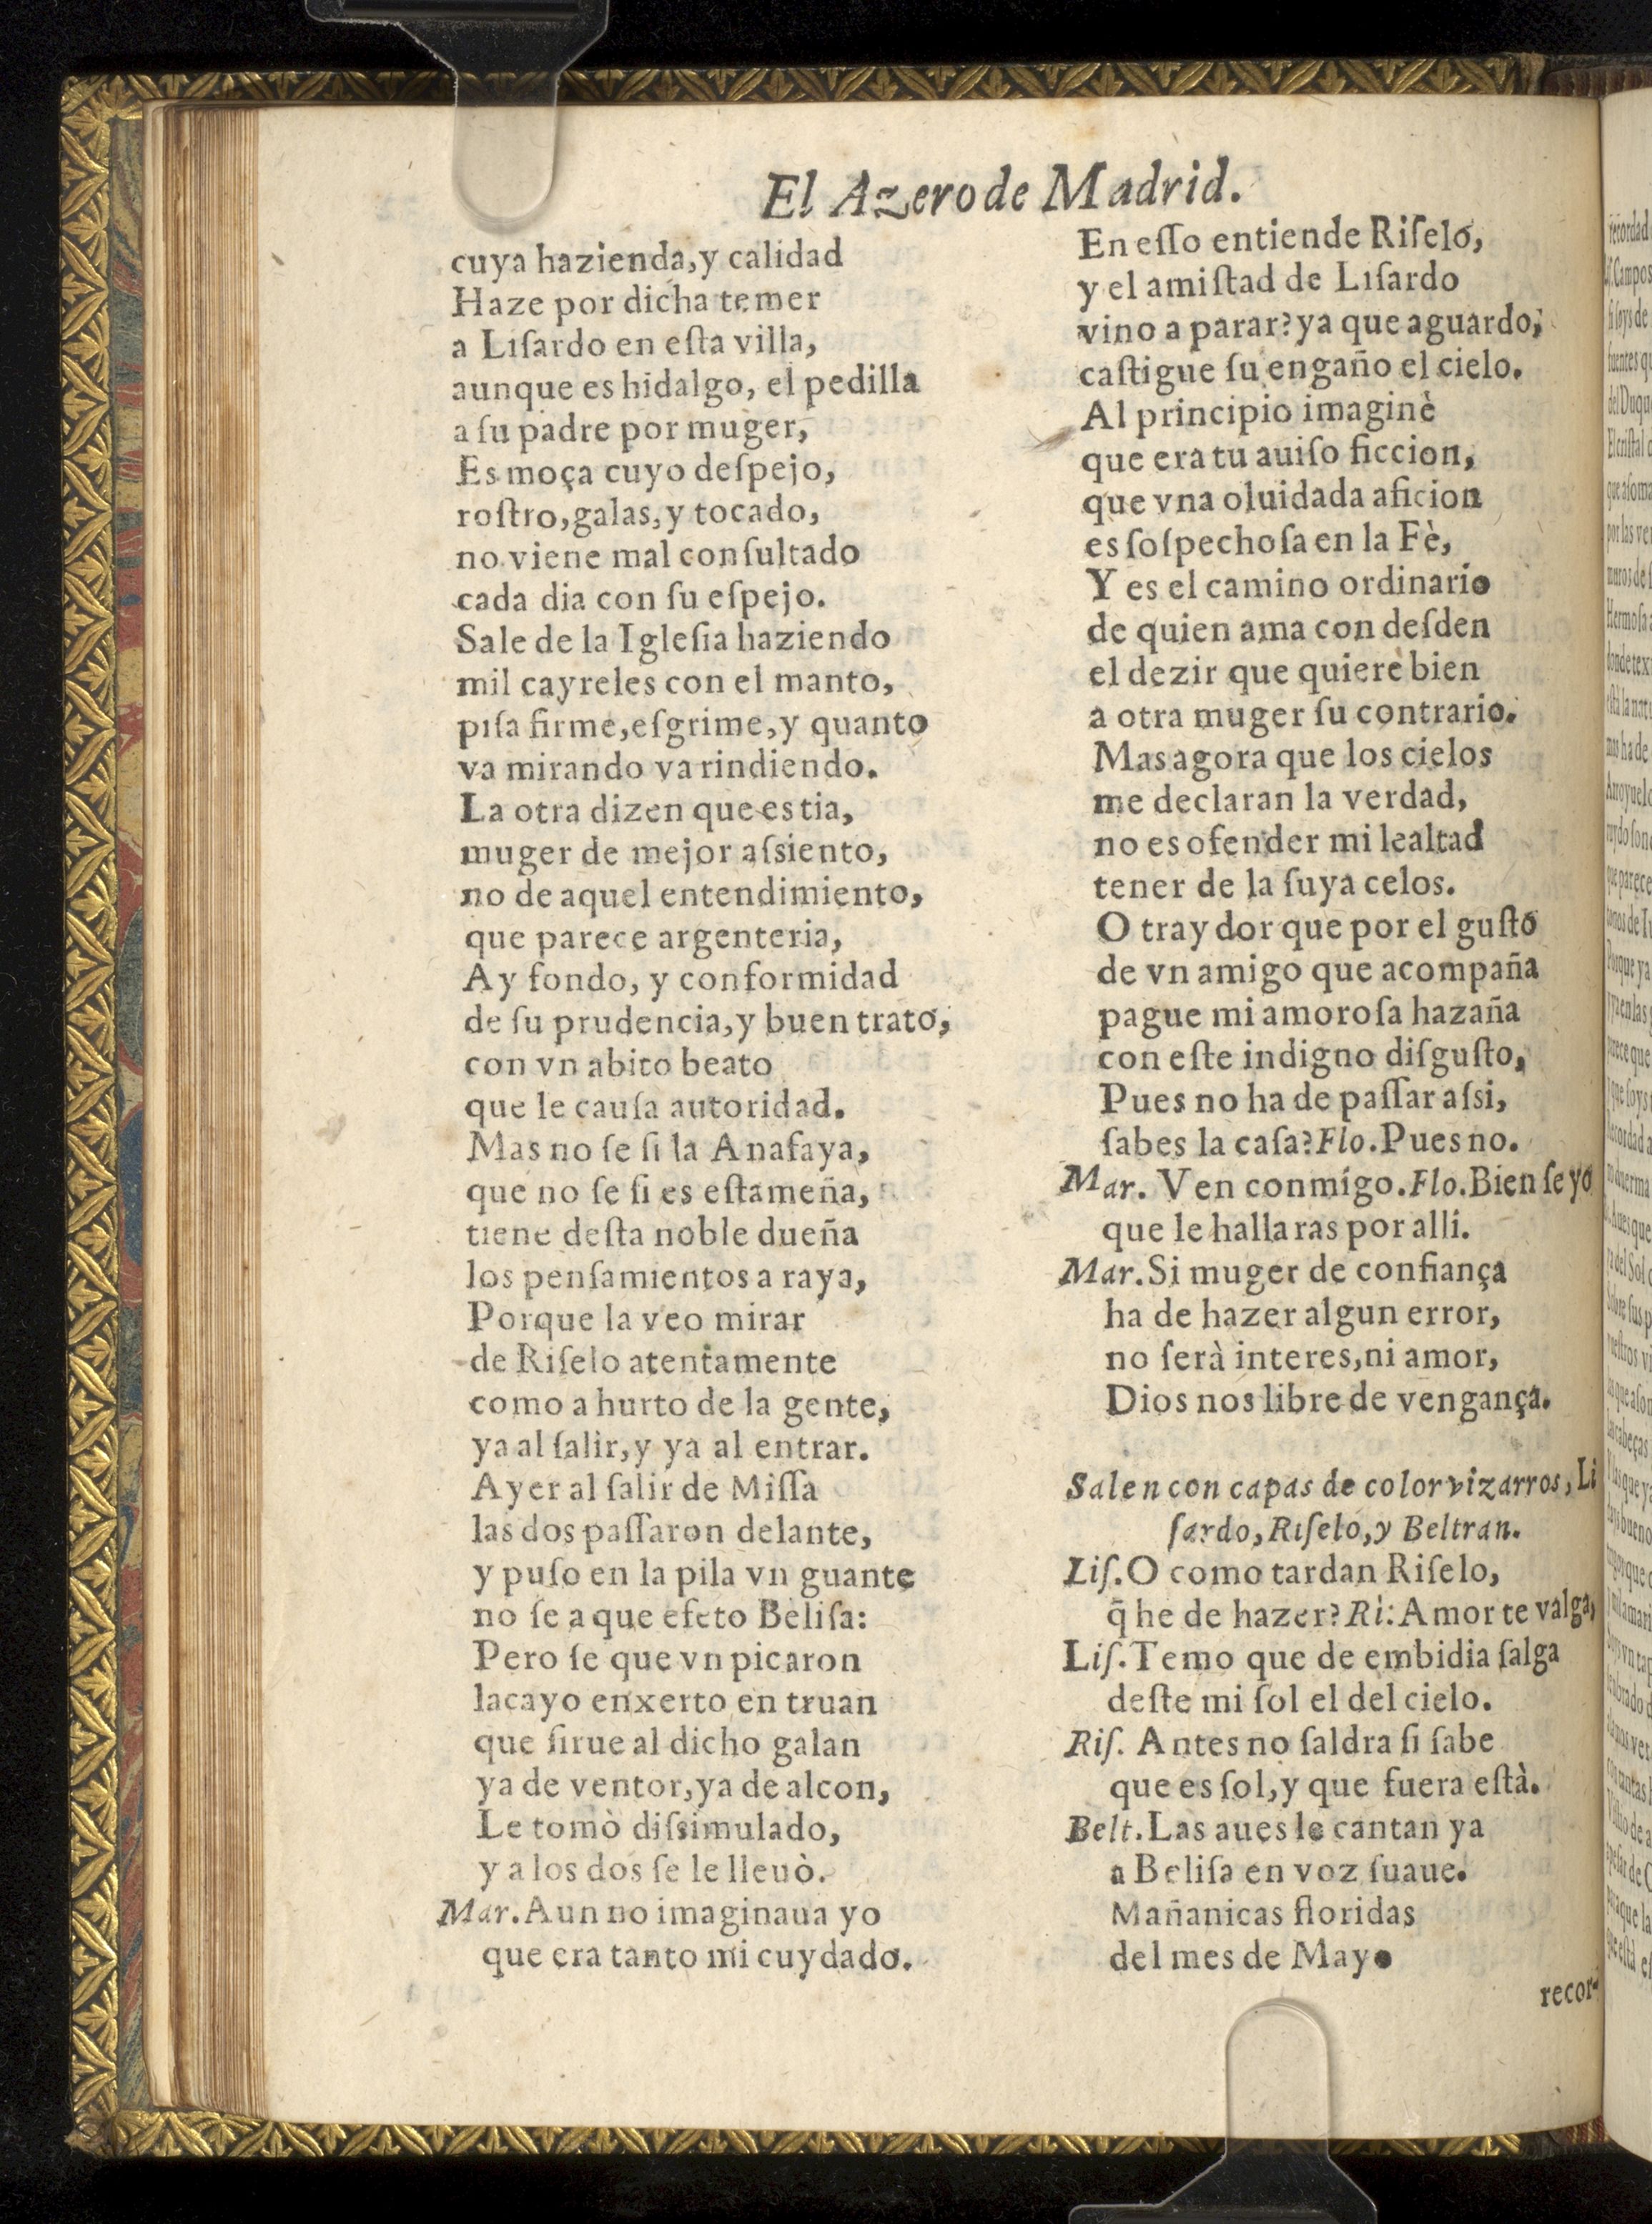 El Azero de Madrid.
cuya hazienda, y calidad
Haze por dicha temer
a Liſardo en eſta villa,
aunque es hidalgo, el pedilla
a ſu padre por muger,
Es moça cuyo deſpejo,
roſtro, galas, y tocado,
no viene mal conſultado
cada dia con ſu eſpejo.
Sale de la Igleſia haziendo
mil cayreles con el manto,
piſa firme, eſgrime, y quanto
va mirando va rindiendo.
La otra dizen que es tia,
muger de mejor aſsiento,
no de aquel entendimiento,
que parece argenteria,
Ay fondo, y conformidad
de ſu prudencia, y buen trato,
con vn abito beato
que le cauſa autoridad.
Mas no ſe ſi la Anafaya,
que no ſe ſi es eſtameña,
tiene deſta noble dueña
los penſamientos a raya,
Porque la veo mirar
de Riſelo atentamente
como a hurto de la gente,
ya al ſalir, y ya al entrar.
Ayer al ſalir de Miſſa
las dos paſſaron delante,
y puſo en la pila vn guante
no ſe a que efeto Beliſa:
Pero ſe que vn picaron
lacayo enxerto en truan
que ſirue al dicho galan
ya de ventor, ya de alcon,
Le tomò diſsimulado,
y a los dos ſe le lleuò.
Mar. Aun no imaginaua yo
que era tanto mi cuydado.
En eſſo entiende Riſelo,
y el amiſtad de Liſardo
vino a parar? ya que aguardo;
caſtigue ſu engaño el cielo.
Al principio imaginè
que era tu auiſo ficcion,
que vna oluidada aficion
es ſoſpechoſa en la Fè,
Y es el camino ordinario
de quien ama con deſden
el dezir que quiere bien
a otra muger ſu contrario.
Mas agora que los cielos
me declaran la verdad,
no es ofender mi lealtad
tener de la ſuya celos.
O traydor que por el guſto
de vn amigo que acompaña
pague mi amoroſa hazaña
con eſte indigno diſguſto,
Pues no ha de paſſar aſsi,
ſabes la caſa? Flo. Pues no.
Mar. Ven conmigo. Flo. Bien ſe yo
que le hallaras por alli.
Mar. Si muger de confiança
ha de hazer algun error,
no ſerà interes, ni amor,
Dios nos libre de vengança.
Salen con capas de color vizarros, Li
ſardo, Riſelo, y Beltran.
Liſ. O como tardan Riſelo,
q̃ he de hazer? Ri: Amor te valga,
Liſ. Temo que de embidia ſalga
deſte mi ſol el del cielo.
Riſ. Antes no ſaldra ſi ſabe
que es ſol, y que fuera eſtà.
Belt. Las aues le cantan ya
a Beliſa en voz ſuaue.
Mañanicas floridas
del mes de Mayo
recor-